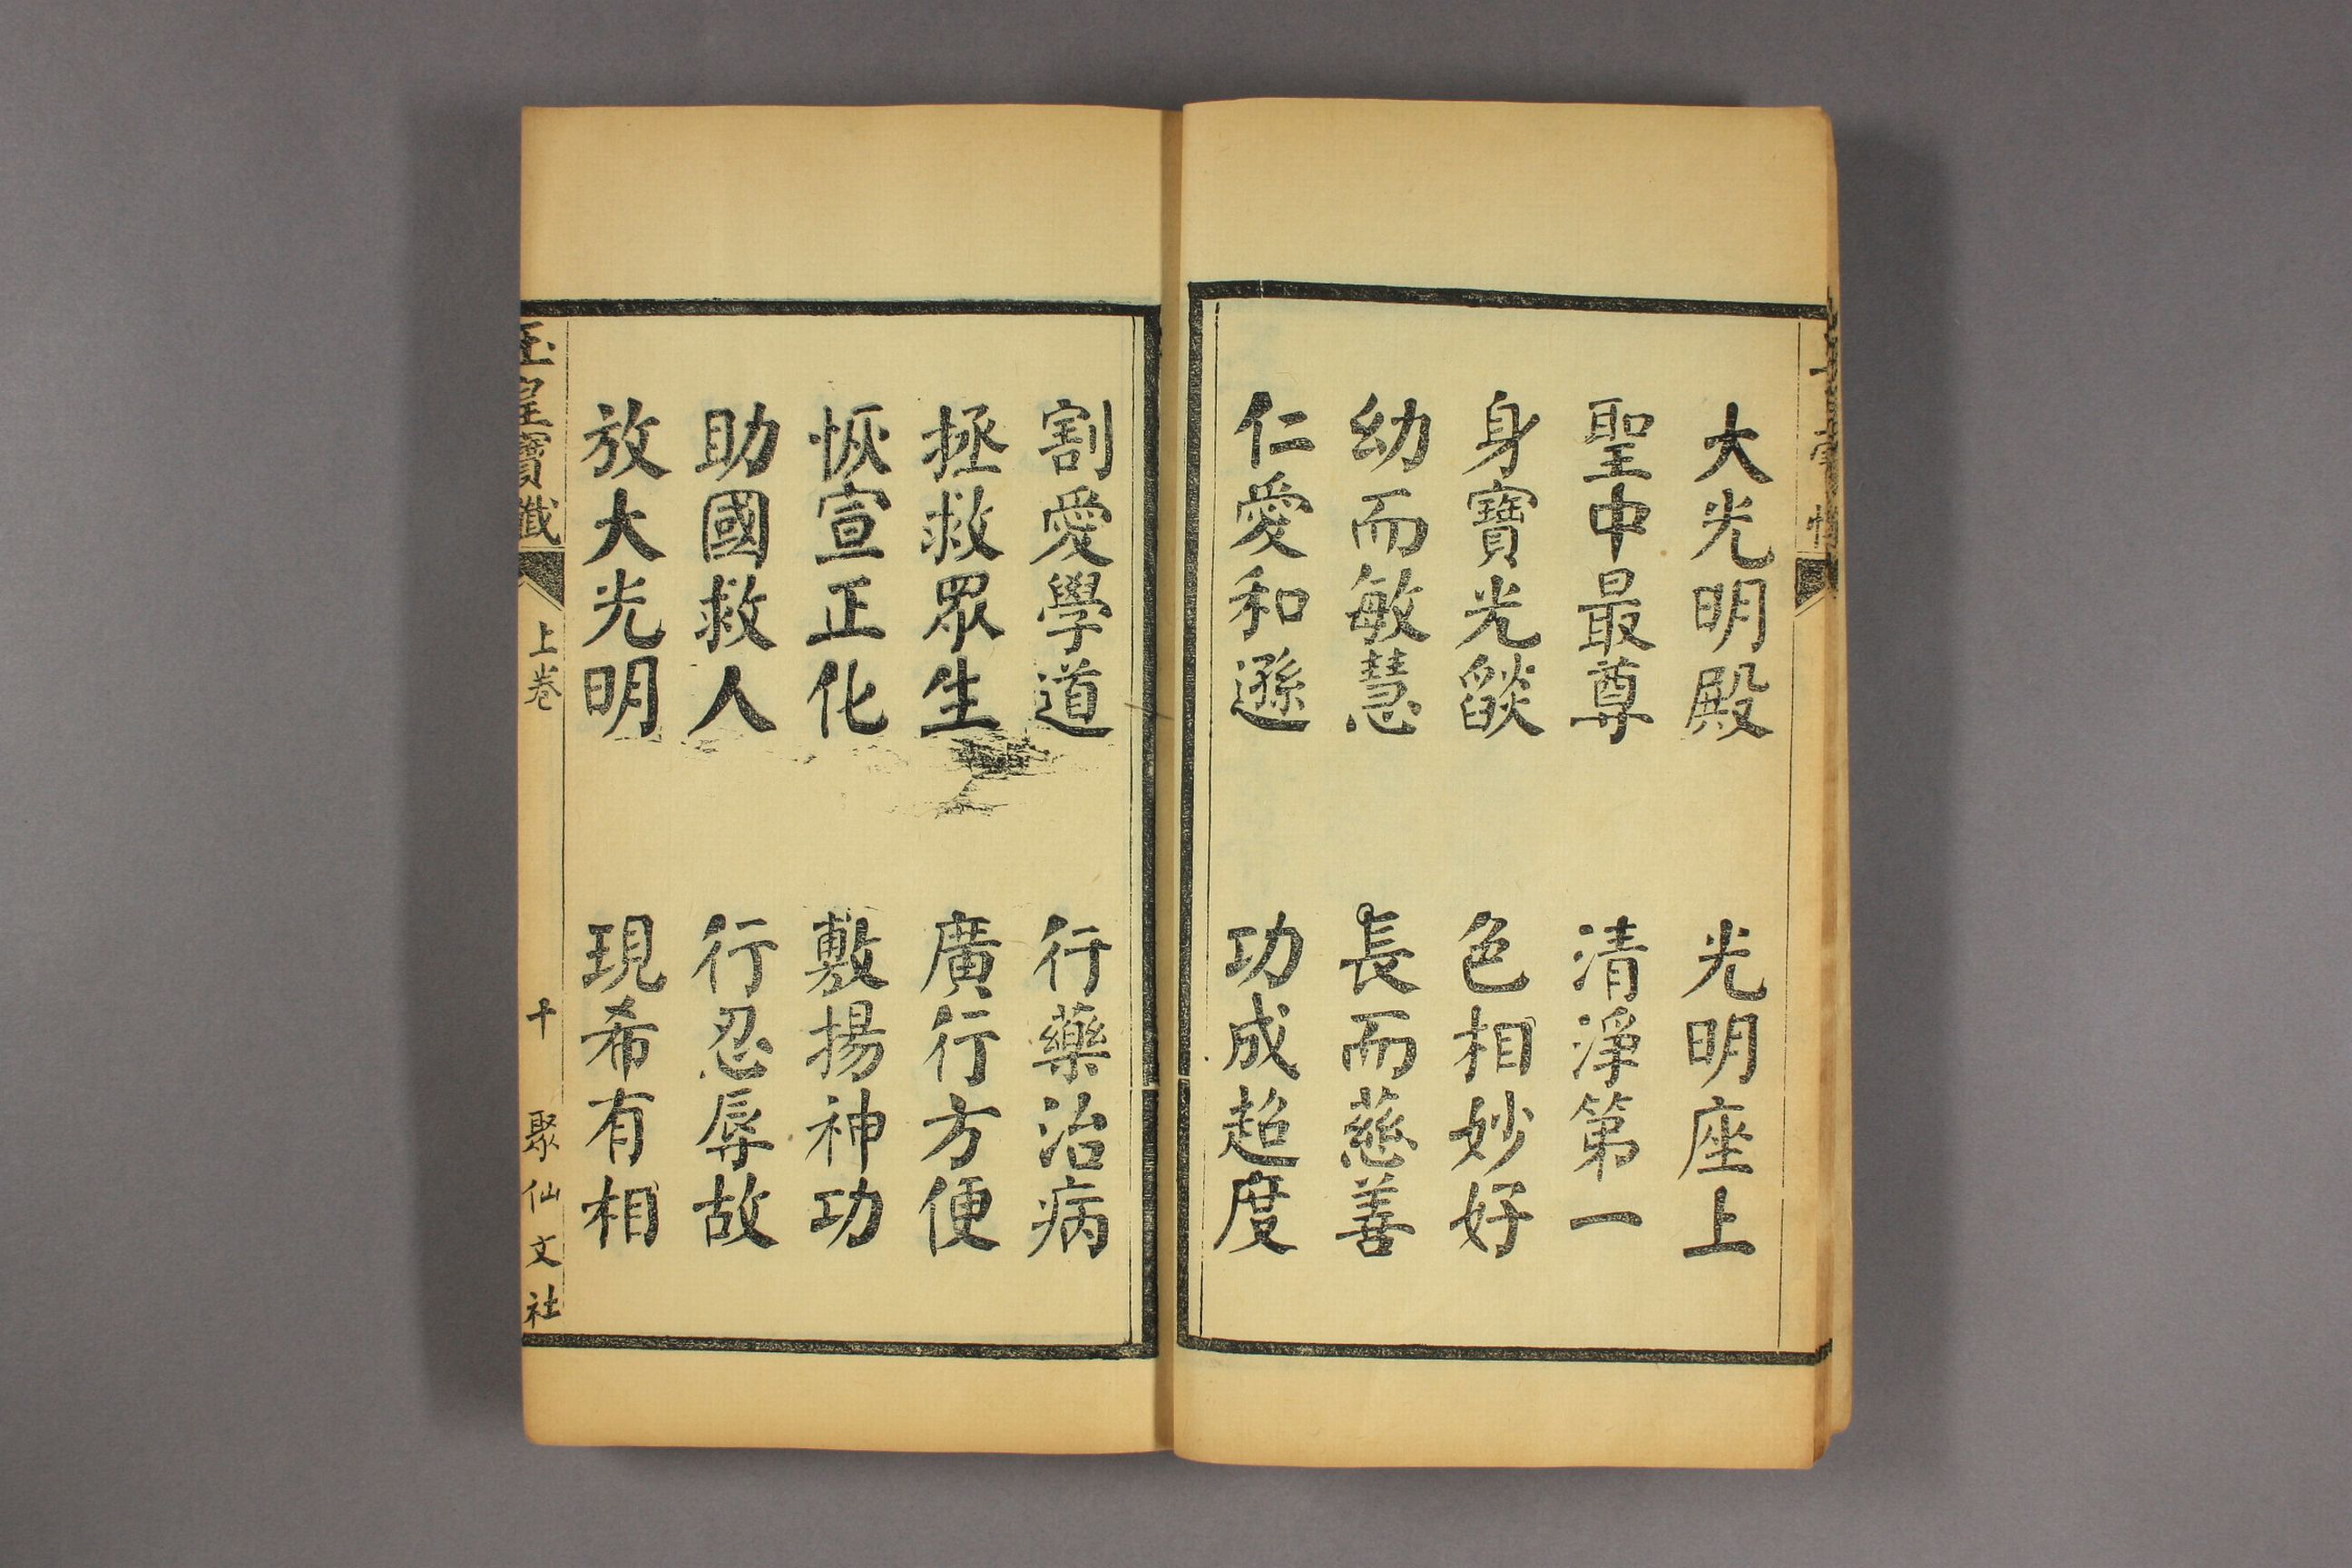 大光明殿 光明座上
聖中最尊 清淨第一
身寶光燄 色相妙好
幼而敏慧 長而慈善
仁愛和遜 功成超度
割愛學道 行藥治病
拯救眾生 廣行方便
恢宣正化 敷揚神功
助國救人 行忍辱故
放大光明 現希有相
玉皇寶懺 上卷 十 聚仙文社